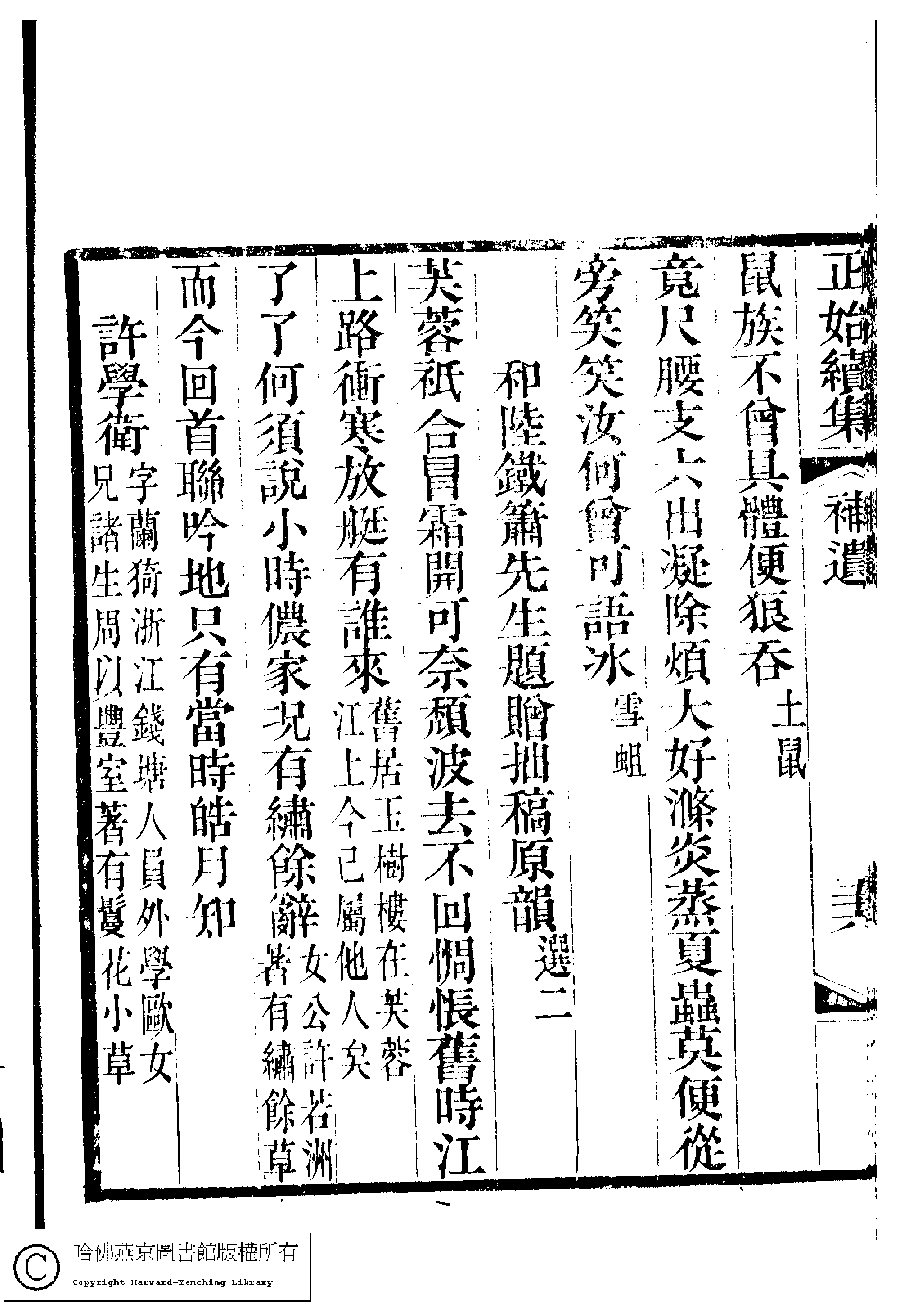 正始續集 補遺
鼠族不曾具體便狠吞土鼠
竟尺腰支六出凝除煩大好滌炎蒸夏蟲莫便從
旁笑笑汝何曾可語冰雪蛆
和陸鐵簫先生題贈拙稿原韻選二
芙蓉祇合冒霜開可奈頹波去不回惆悵舊時江
上路衝寒放艇有誰來舊居玉樹樓在芙蓉江上今已屬他人矣
了了何須說小時儂家況有繡餘辭女公許若洲著有繡餘草
而今回首聯吟地只有當時皓月知
許學衛字蘭猗浙江錢塘人員外學歐女兄諸生周以豐室著有鬘花小草
哈佛燕京圖書館版權所有
Copyright Harvard-Yenching Library